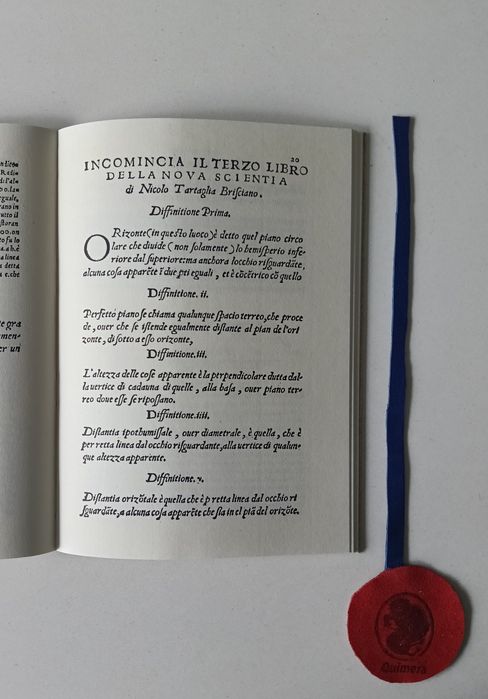 20
INCOMINCIA IL TERZO LIBRO
DELLA NOVA SCIENTIA
di Nicolo Tartaglia Brisciano.
Diffinitione Prima.
ORizonte (in questo luoco) è detto quel piano circo
lare che diuide (non solamente) lo hemisperio infe-
riore dal superiore: ma anchora locchio risguardãte,
alcuna cosa apparẽte ĩ due pti eguali, et è cõcẽtrico cõ quello
Diffinitione. ii.
Perfetto piano se chiama qualunque spacio terreo, che proce
de, ouer che se istende egualmente distante al pian de l'ori
zonte, di sotto a esso orizonte,
Diffinitione. iii.
L'altezza delle cose apparente è la perpendicolare dutta dal-
la vertice di cadauna di quelle, alla basa, ouer piano ter-
reo doue esse se ripossano.
Diffinitione. iiii.
Distantia ipothumissale, ouer diametrale, è quella, che è
per retta linea dal occhio risguardante, alla vertice di qualun-
que altezza apparente.
Diffinitione. v.
Distantia orizõtale è quella che è p retta linea dal occhio ri
sguardãte, a alcuna cosa apparẽte che sia in el piã del orizõte.
Quimera